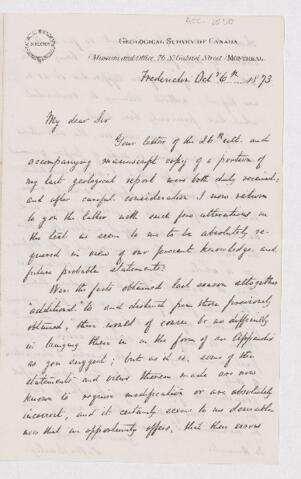 GEOLOGICAL SURVEY OF CANADA
Museum and Office, 76 St. Gabriel Street, MONTREAL.
Fredericton Oct 6th 1873
My dear Sir
Your letter of the 26th ult. and
accompanying manuscript copy of a portion of
my last geological report were both duly received,
and after careful consideration I now return
to you the latter with such few alterations in
the text as seem to me to be absolutely re-
quired in view of our present knowledge and
future probable statements.
Were the facts obtained each season altogether
"additional" to and distinct from those previously
obtained, there would of course be no difficulty
in bringing them in in the form of an Appendix
as you suggest; but as it is, some of the
statements and views therein made are now
known to require modification or are absolutely
incorrect, and it certainly seems to me desirable
now that an opportunity offers, that these errors